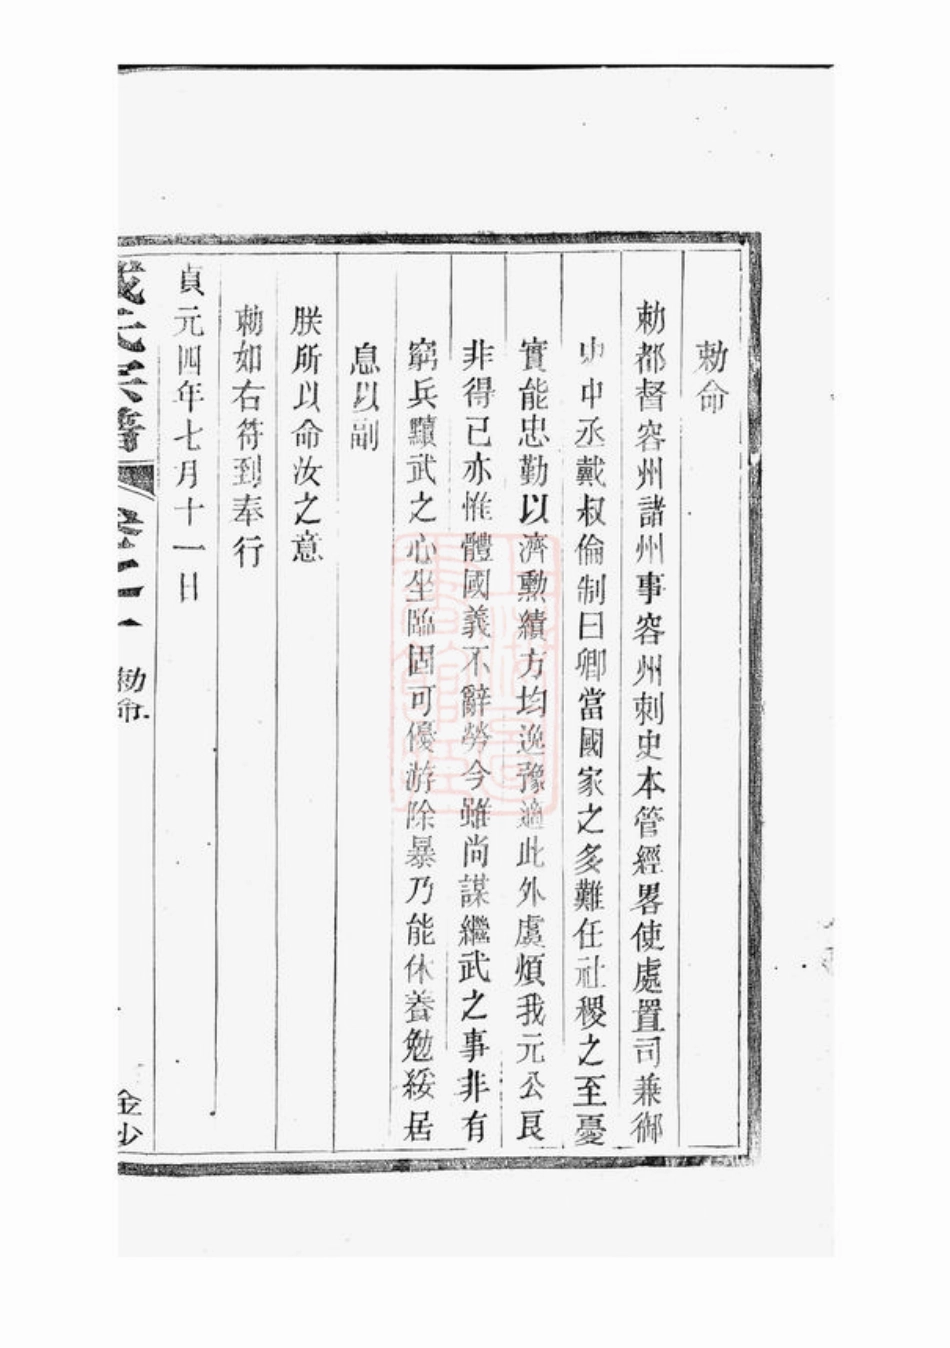 勅命
勅都督容州諸州事容州刺史本管經畧使處置司兼御
中丞戴叔倫制曰卿當國家之多難任社稷之至憂
實能忠勤以濟勲績方均逸豫適此外虞煩我元公良
非得已亦惟體國義不辭勞今雖尚謀繼武之事非有
窮兵黷武之心坐臨固可優游除暴乃能休養勉綏居
息以副
朕所以命汝之意
勅如右符到奉行
貞元四年七月十一日
戴氏宗譜 卷之一 勅命 金沙